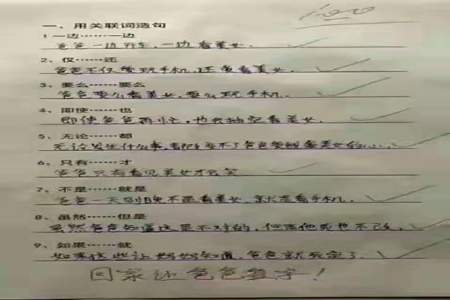 一、用关联词造句
1 一边……一边
爸爸一边开车,一边看美女。
2、仅……还
爸爸不仅爱玩手机,还爱看美女。
3、要么……要么
爸爸要么看美女,要么玩手机。
4、即使……也
即使爸爸再忙,也会抽空看美女。
5、无论……都
无论发生什么事,都改变不了爸爸爱看美女的
6、只有……才
爸爸只有看见美女才会笑
7、不是……就是
爸爸一天到晚不是看美女,就是看手机。
8、虽然……但是
虽然爸爸知道这是不对的,但是他就是不改。
9、如果……就
如果这些让妈妈知道,爸爸就死定了。
回家让爸爸签字!